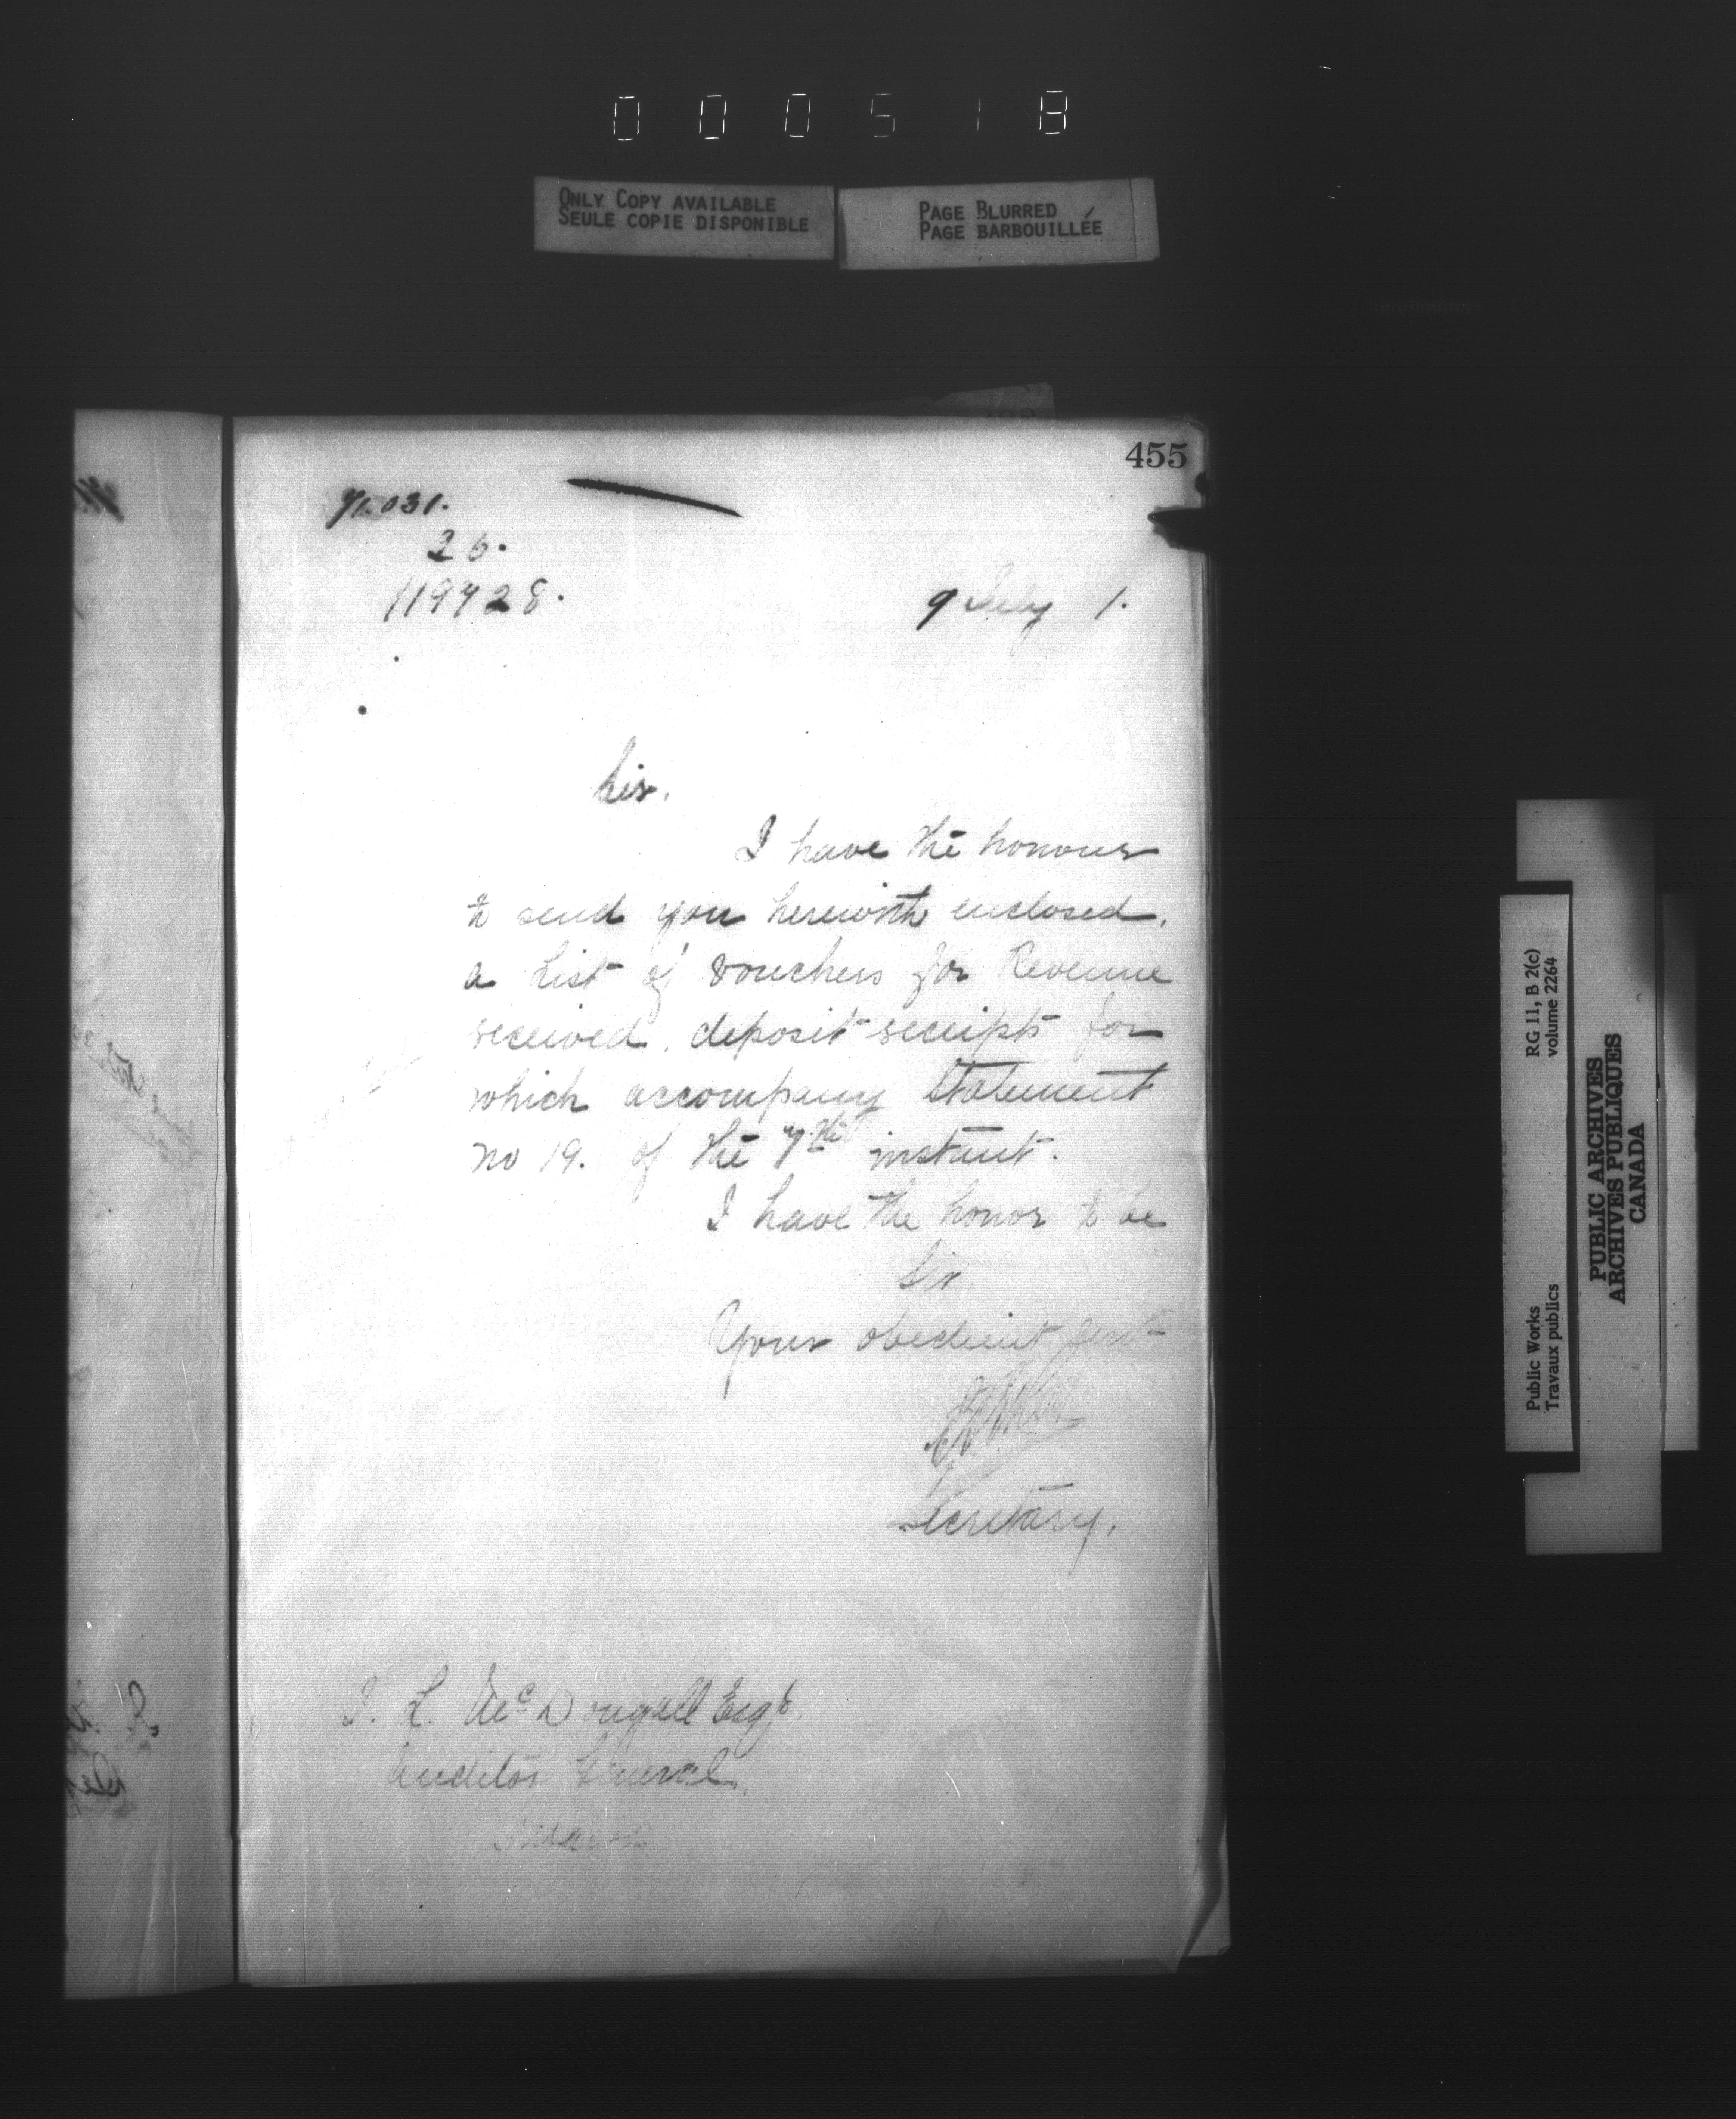 000518
ONLY COPY AVAILABLE
SEULE COPIE DISPONIBLE
PAGE BLURRED
PAGE BARBOUILLÉE
455
71.031.
26.
119728.
9 July 1.
Sir,
I have the honour
to send you herewith enclosed,
a List of vouchers for Revenue
received, deposit receipts for
which accompany Statement
no 19. of the 7th instant.
I have the honor to be
Sir
Your obedient servt
Secretary.
J. L. McDougall Esqr.
Auditor General
RG 11, B 2(c)
volume 2264
Public Works
Travaux publics
PUBLIC ARCHIVES
ARCHIVES PUBLIQUES
CANADA